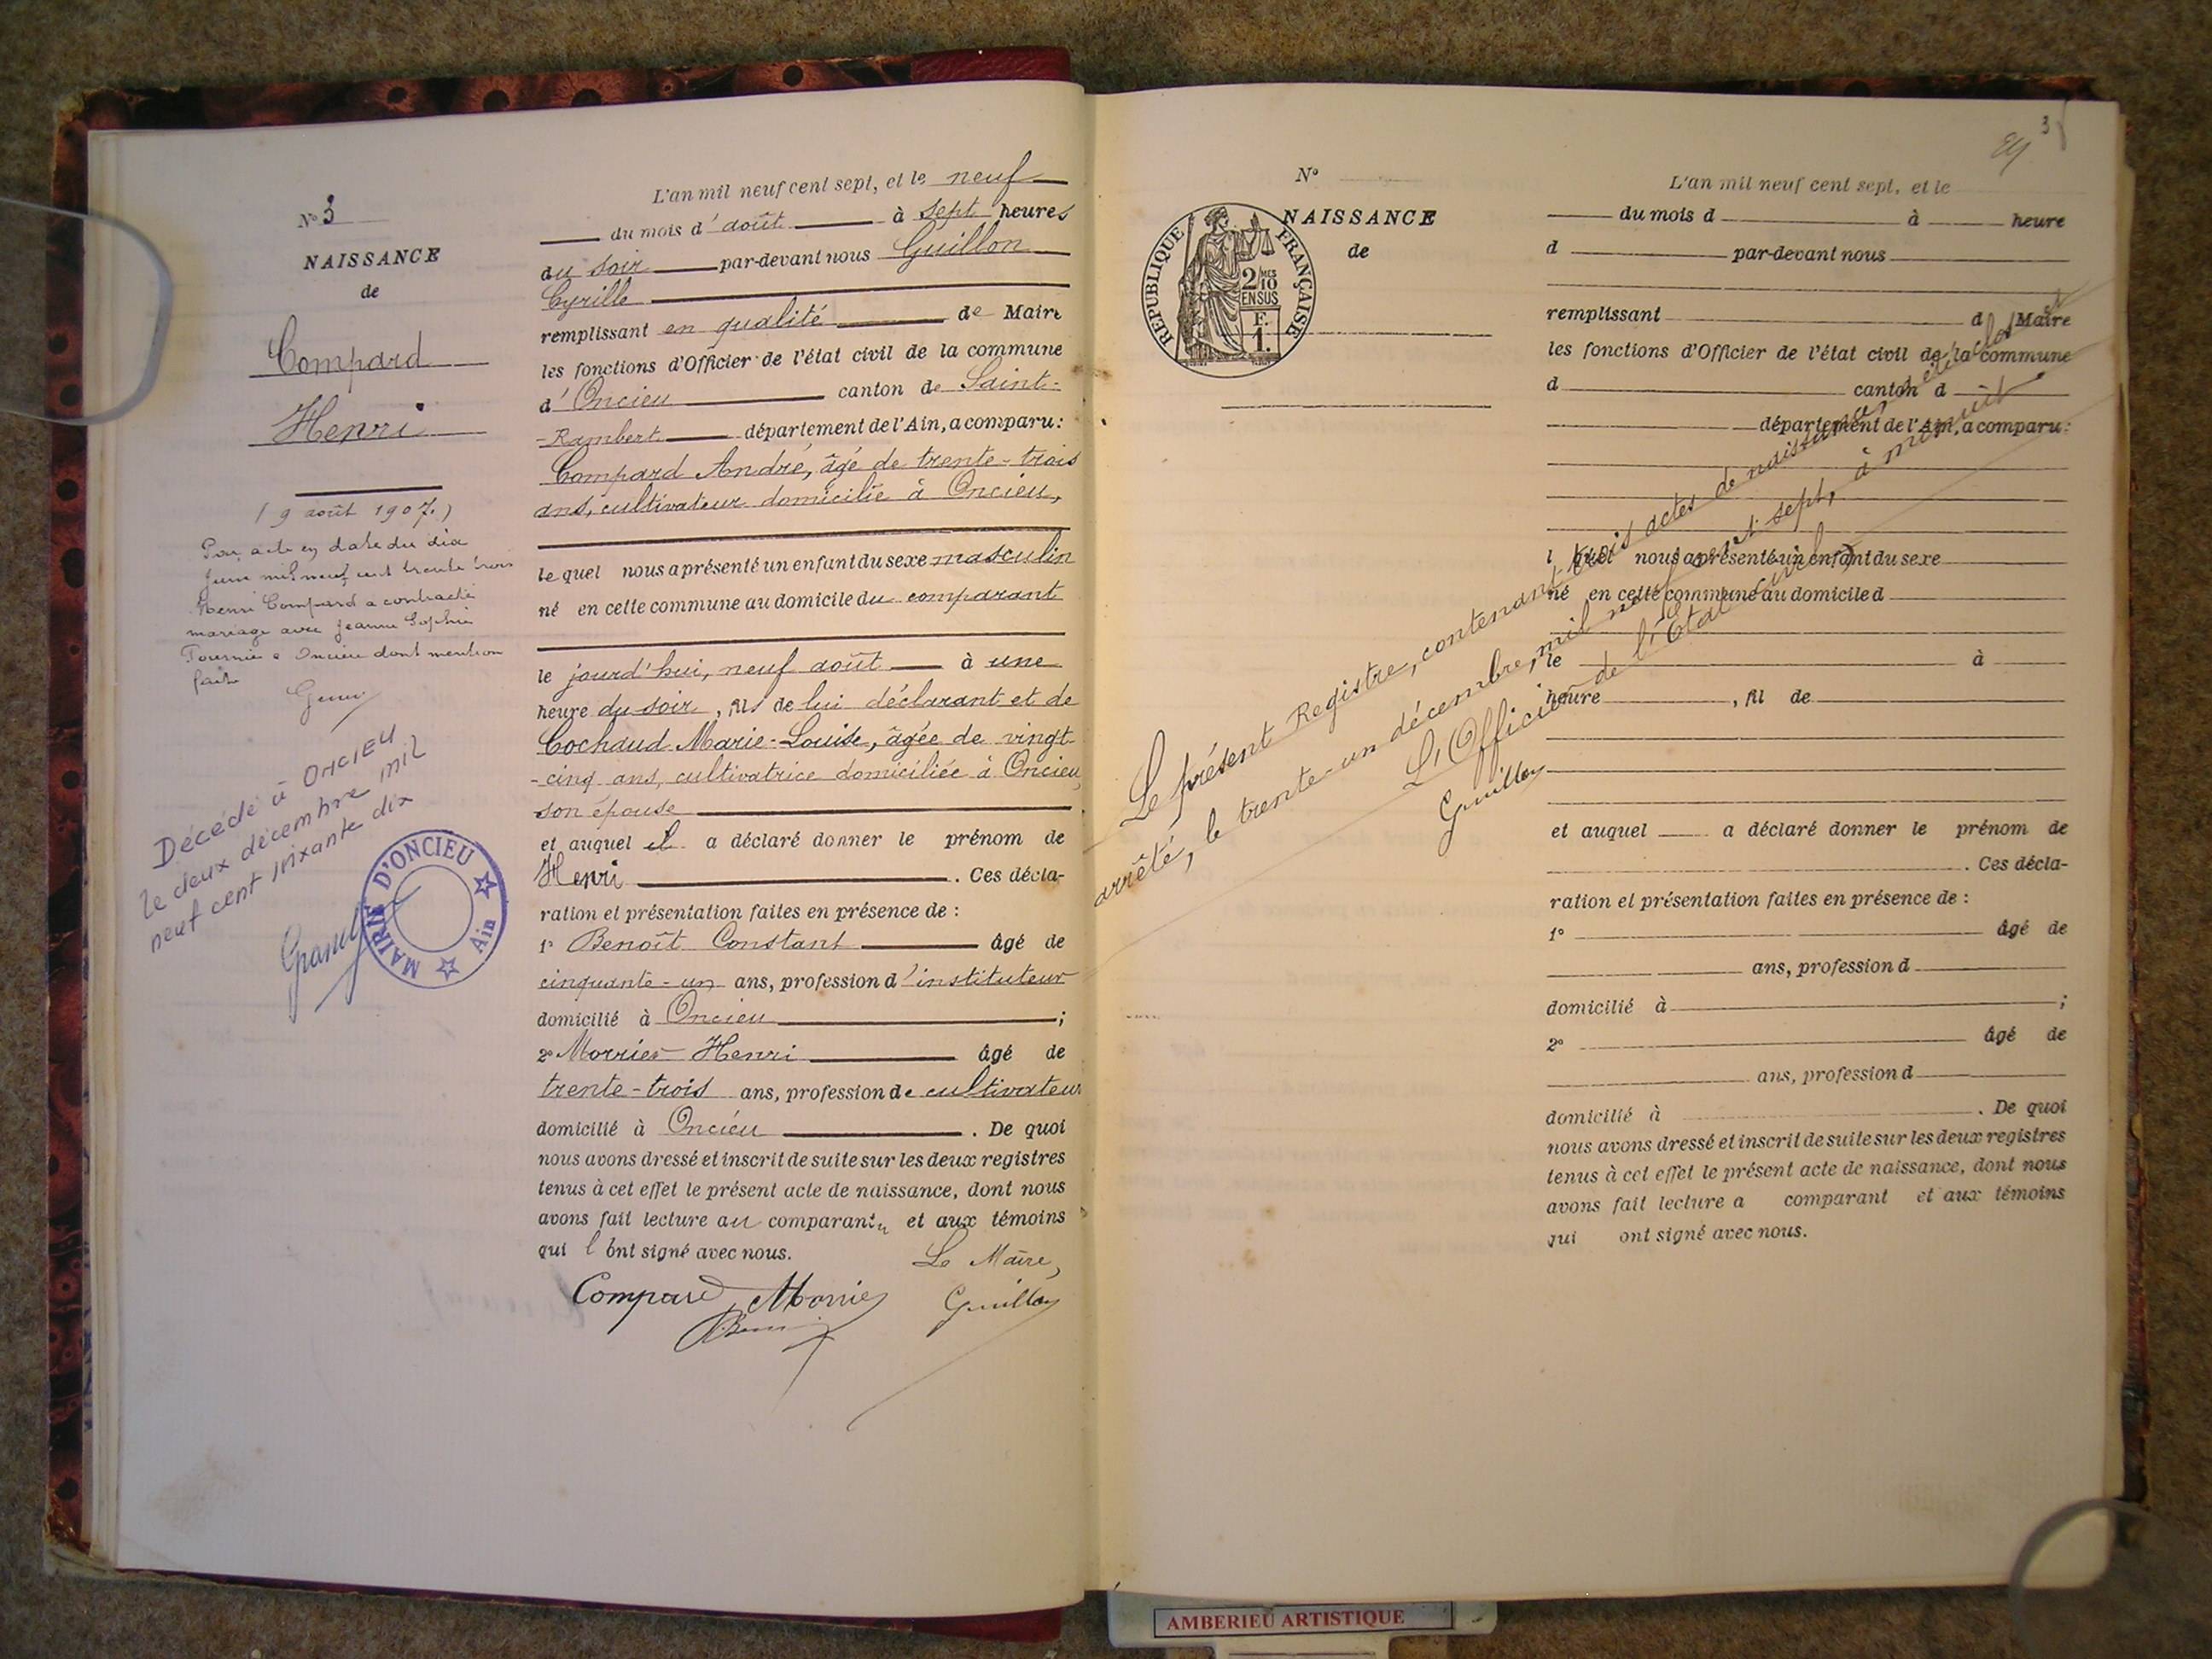 N° 3
NAISSANCE
de
Compard
Henri
( 9 août 1907. )
Par acte en date du dix
juin mil neuf cent trente trois
Henri Compard a contracté
mariage avec Jeanne Sophie
Tournier à Oncieu dont mention
faite
Décédé à ONCIEU
le deux décembre mil
neuf cent soixante dix
MAIRIE D'ONCIEU
Ain
L'an mil neuf cent sept, et le neuf
du mois d'août à sept heures
du soir par-devant nous Guillon
Cyrille
remplissant en qualité de Maire
les fonctions d'Officier de l'état civil de la commune
d'Oncieu canton de Saint-
-Rambert département de l'Ain, a comparu :
Compard André, âgé de trente-trois
ans, cultivateur domicilié à Oncieu,
lequel nous a présenté un enfant du sexe masculin
né en cette commune au domicile du comparant
le jourd'hui, neuf août à une
heure du soir, fils de lui déclarant et de
Cochaud Marie-Louise, âgée de vingt-
-cinq ans, cultivatrice domiciliée à Oncieu,
son épouse
et auquel il a déclaré donner le prénom de
Henri . Ces décla-
ration et présentation faites en présence de :
1° Benoît Constant âgé de
cinquante-un ans, profession d'instituteur
domicilié à Oncieu ;
2° Morrier Henri âgé de
trente-trois ans, profession de cultivateur
domicilié à Oncieu . De quoi
nous avons dressé et inscrit de suite sur les deux registres
tenus à cet effet le présent acte de naissance, dont nous
avons fait lecture au comparant et aux témoins
qui l'ont signé avec nous.
Le Maire,
Compard Morrier Guillon
3
N°
NAISSANCE
de
RÉPUBLIQUE FRANÇAISE
2/10 MES
EN SUS
F.
1.
L'an mil neuf cent sept, et le
du mois d à heure
d par-devant nous
remplissant d Maire
les fonctions d'Officier de l'état civil de la commune
d canton d
département de l'Ain, a comparu :
l quel nous a présenté un enfant du sexe
né en cette commune au domicile d
le à
heure , fil de
et auquel a déclaré donner le prénom de
. Ces décla-
ration et présentation faites en présence de :
1° âgé de
ans, profession d
domicilié à ;
2° âgé de
ans, profession d
domicilié à . De quoi
nous avons dressé et inscrit de suite sur les deux registres
tenus à cet effet le présent acte de naissance, dont nous
avons fait lecture a comparant et aux témoins
qui ont signé avec nous.
Le présent Registre, contenant trois actes de naissances, a été clos et
arrêté, le trente-un décembre, mil neuf cent sept, à minuit.
L'Officier de l'État civil
Guillon
AMBERIEU ARTISTIQUE